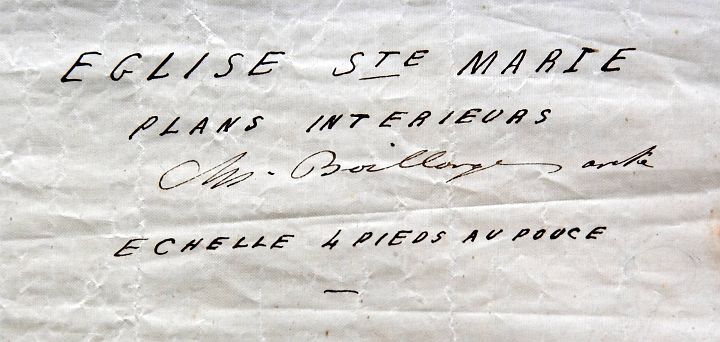 EGLISE STE MARIE
PLANS INTERIEURS
Chs. Baillargé archte
ECHELLE 4 PIEDS AU POUCE